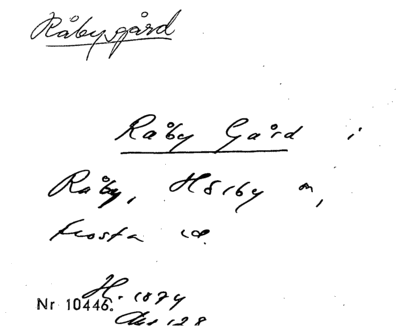 Råbygård
Råby Gård i
Råby, Hörby
Frosta
H. 1874
Nr 10446.
128